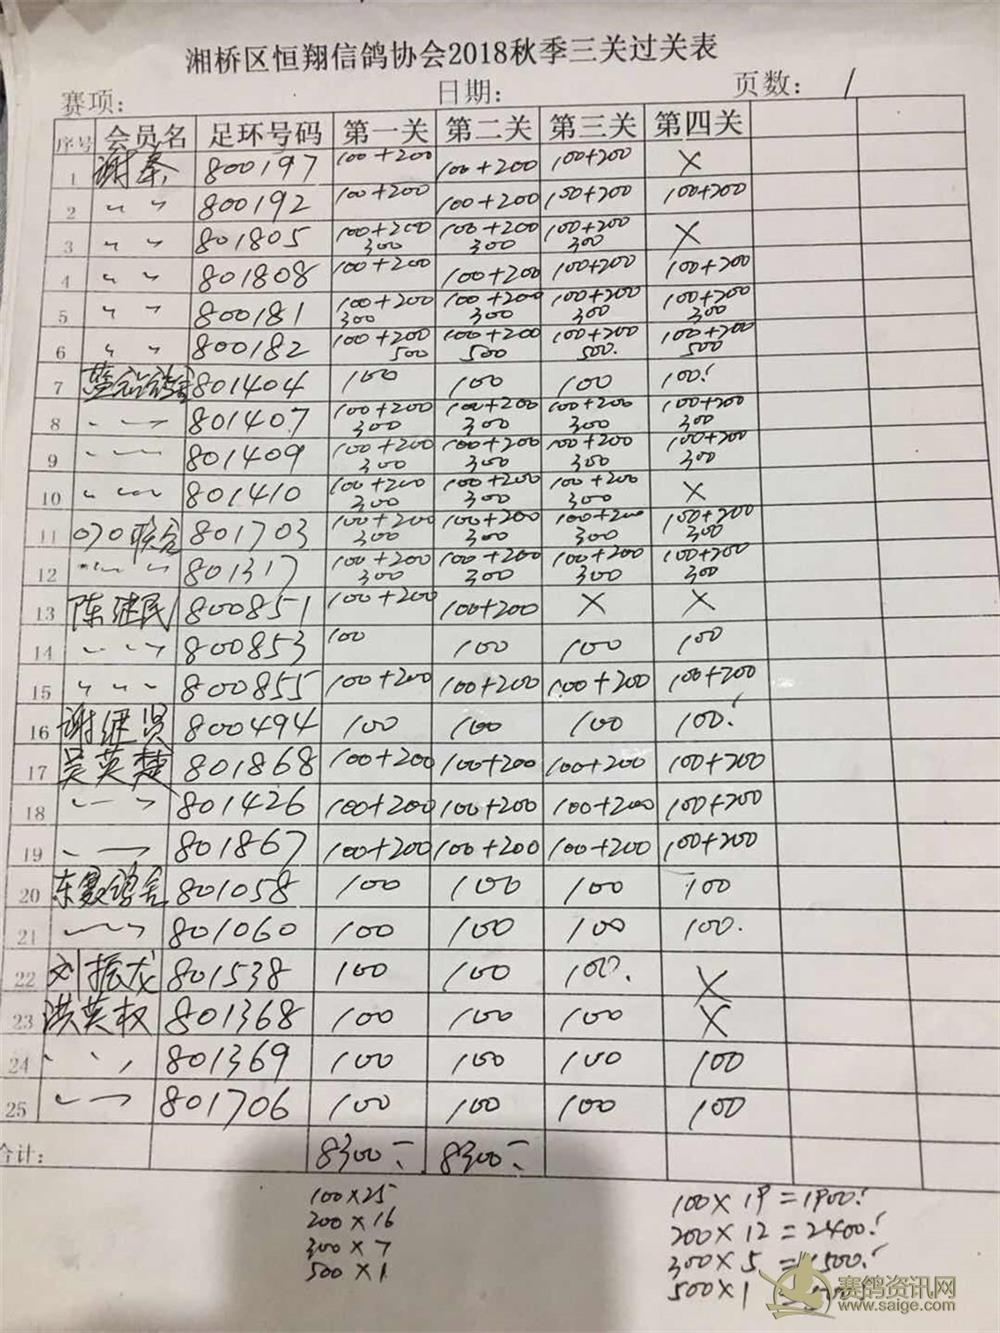 湘桥区恒翔信鸽协会2018秋季三关过关表
赛项: 日期: 页数: 1
序号 会员名 足环号码 第一关 第二关 第三关 第四关
1 谢秦 800197 100+200 100+200 100+200 ×
2 〃 〃 800192 100+200 100+200 100+200 100+200
3 〃 〃 801805 100+200 300 100+200 300 100+200 300 ×
4 〃 〃 801808 100+200 100+200 100+200 100+200
5 〃 〃 800181 100+200 300 100+200 300 100+200 300 100+200 300
6 〃 〃 800182 100+200 500 100+200 500 100+200 500. 100+200 500
7 801404 100 100 100 100!
8 801407 100+200 300 100+200 300 100+200 300 100+200 300
9 801409 100+200 300 100+200 300 100+200 300 100+200 300
10 801410 100+200 300 100+200 300 100+200 300 ×
11 070联合 801703 100+200 300 100+200 300 100+200 300 100+200 300
12 801317 100+200 300 100+200 300 100+200 300 100+200 300
13 陈继民 800851 100+200 100+200 × ×
14 800853 100 100 100 100
15 〃 〃 〃 800855 100+200 100+200 100+200 100+200
16 谢继贤 800494 100 100 100 100!
17 吴英楚 801868 100+200 100+200 100+200 100+200
18 801426 100+200 100+200 100+200 100+200
19 801867 100+200 100+200 100+200 100+200
20 801058 100 100 100 100
21 801060 100 100 100 100.
22 刘振龙 801538 100 100 100. ×
23 洪英权 801368 100 100 100 ×
24 801369 100 100 100 100
25 801706 100 100 100 100
合计: 8300 8300
100×25 100×19=1900!
200×16 200×12=2400!
300×7 300×5=1500!
500×1 500×1
赛鸽资讯网
www.saige.com